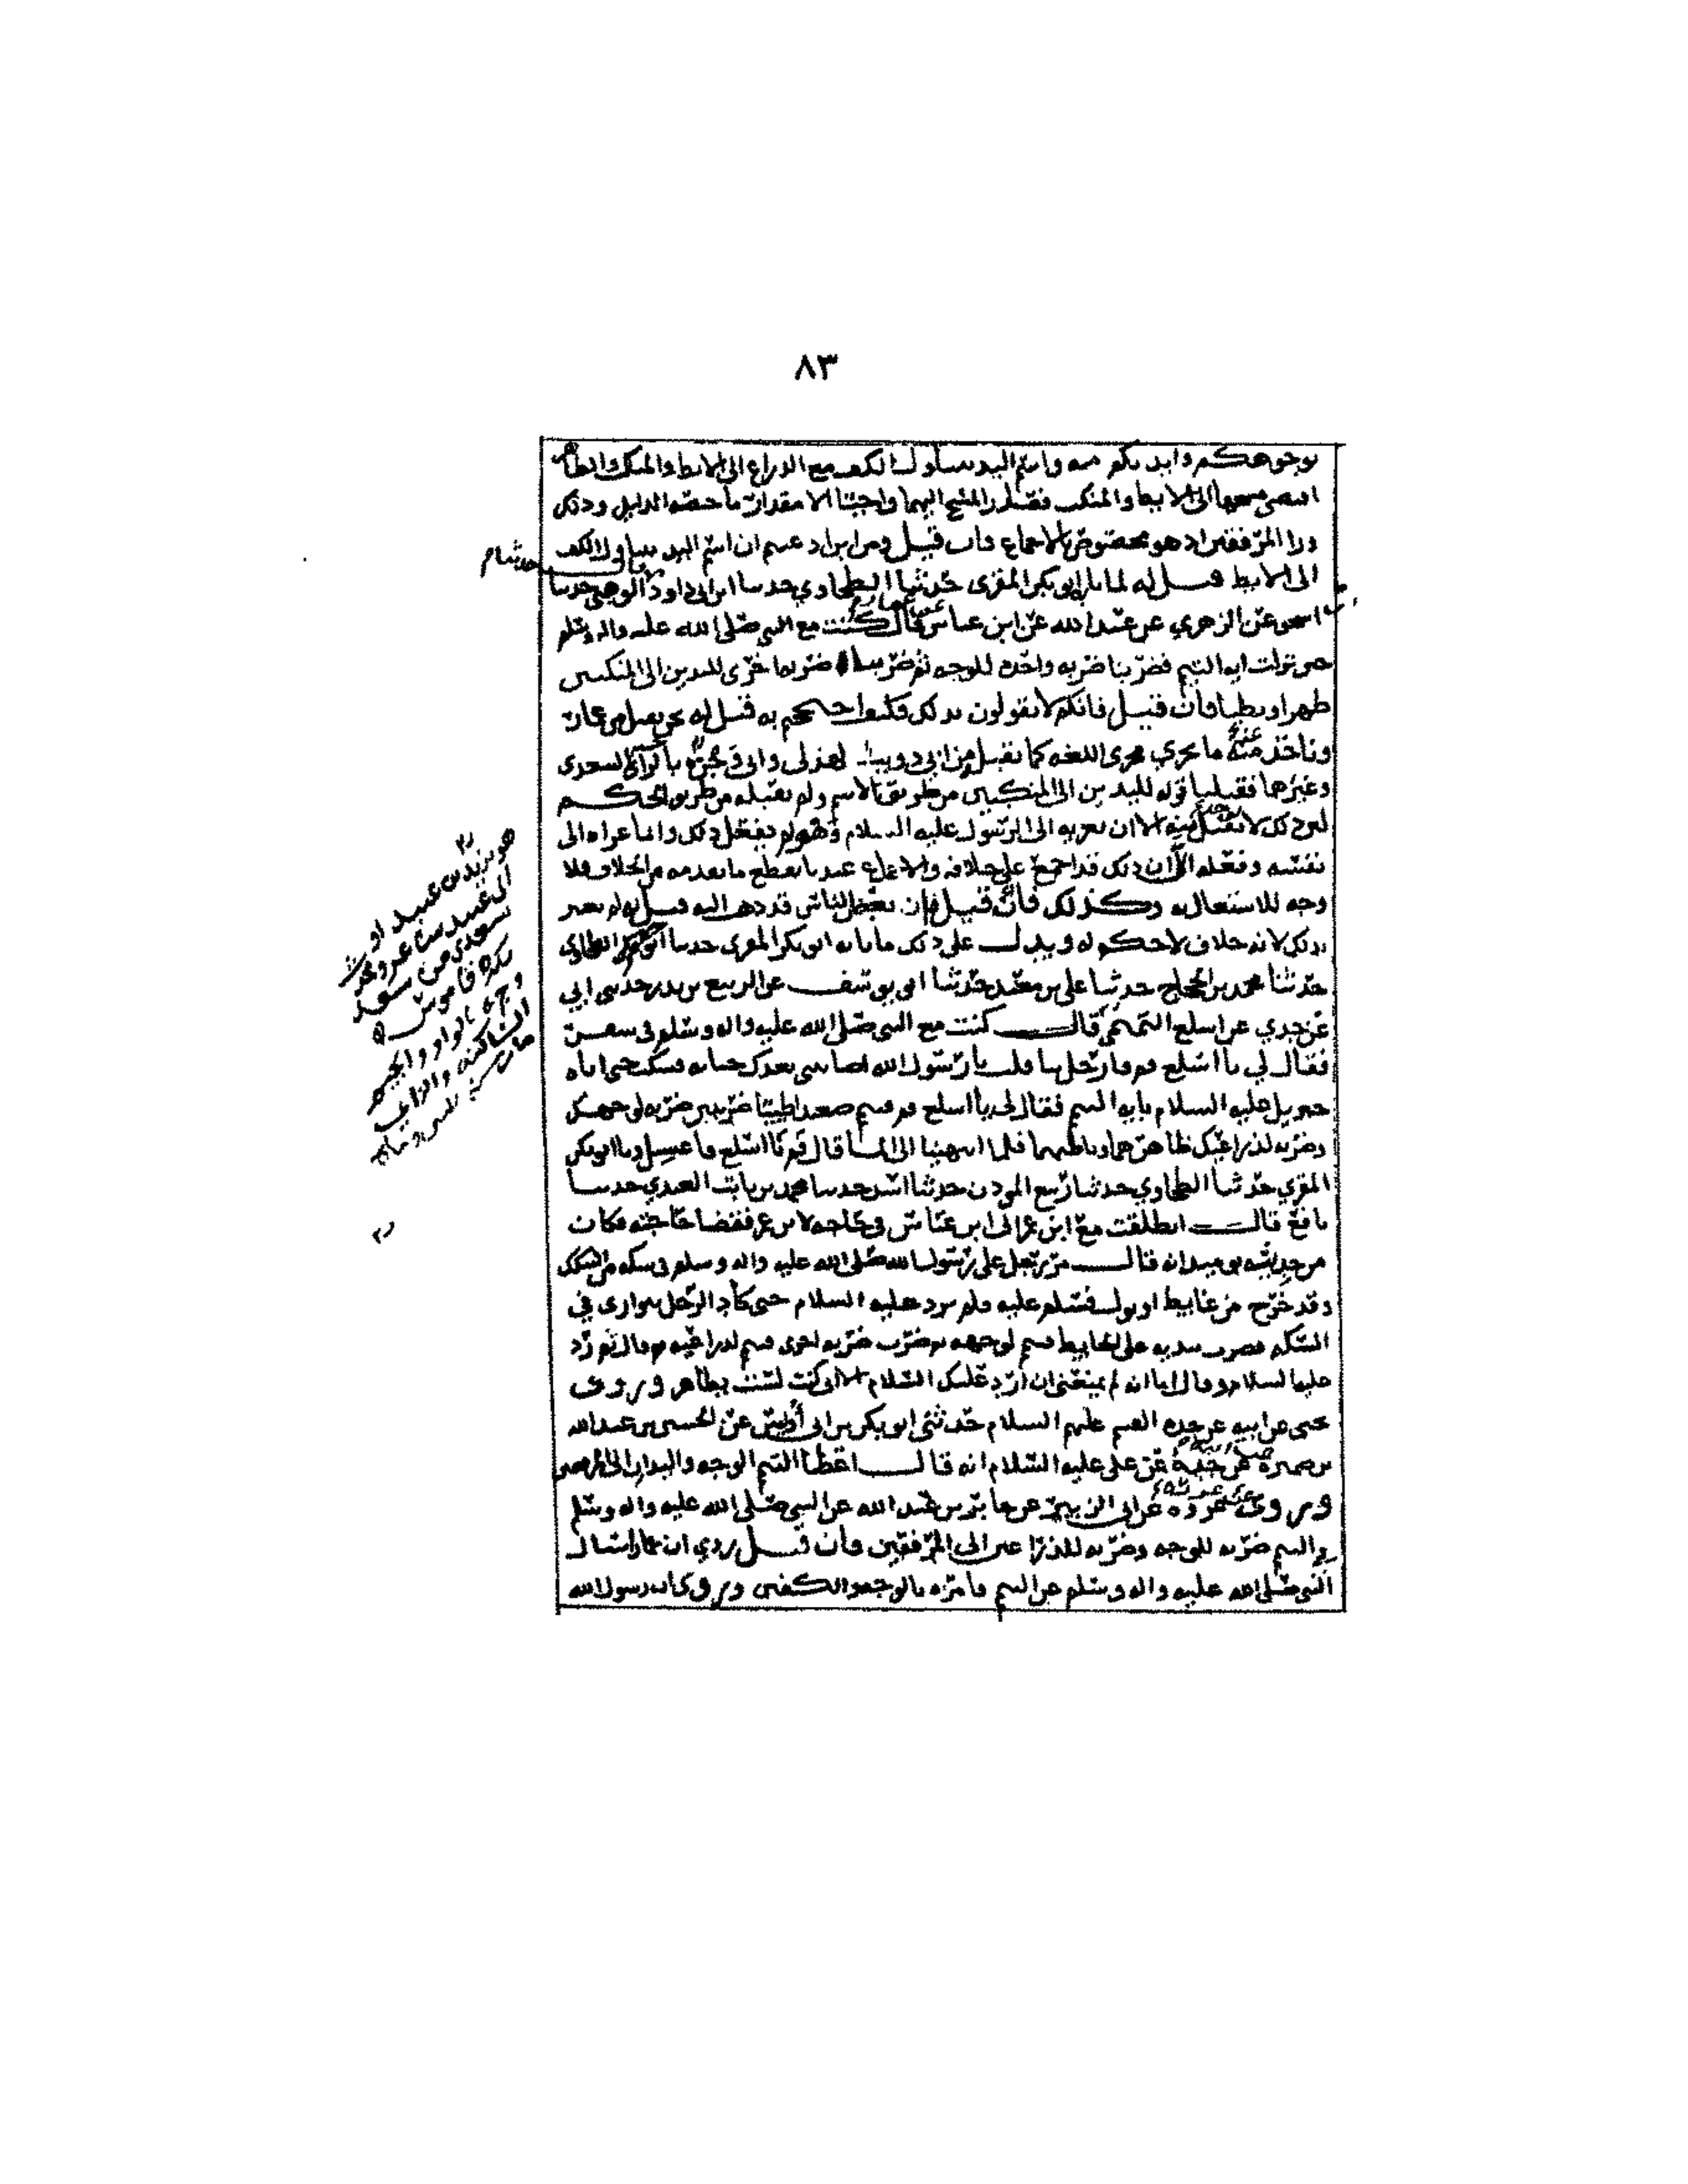 ٨٣
بوجوهكم وايديكم منه واسم اليد يتناول الكف مع الذراع الى الابط والمنكب والظاهر
اقتضى مسحها الى الابط والمنكب فصار المسح اليهما واجبا الا مقدار ما خصه الدليل وذلك
ورا المرفقين اذ هو مخصوص بالاجماع فان قيل ومن اين ادعيتم ان اسم اليد يتناول الكف
الى الابط قيل له لما ابو بكر المقري حدثنا الطحاوي حدثنا ابن ابي داود الوهبي حدثنا
اسحق عن الزهري عن عبيد الله عن ابن عباس عن عمار قال كنت مع النبي صلى الله عليه واله وسلم
حين نزلت اية التيمم فضربنا ضربة واحدة للوجه ثم ضربنا ضربة اخرى لليدين الى المنكبين
ظهرا وبطنا فان قيل فانكم لا تقولون بذلك فكيف احتججتم به قيل له نحن نقبل من عمار
وناخذ عنه ما يجري مجرى اللغة كما نقبل من ابي ذويب الهذلي وابي وجزة السعدي
وغيرهما فقبلنا قوله لليدين الى المنكبين من طريق الاسم ولم نقبله من طريق الحكم
لان ذلك لا نقبل منه الا ان يعزيه الى الرسول عليه السلام وهو لم يفعل ذلك وانما عزاه الى
نفسه وفعله الا ان ذلك قد اجمع على خلافه والاجماع عندنا يقطع ما تقدمه من الخلاف فلا
وجه للاشتغال به وكذلك فان قيل فان بعض الناس قد ذهب اليه قيل له لم يعتبر
بذلك لانه خلاف لا حكم له ويدل على ذلك ما انا به ابو بكر المقري حدثنا ابو جعفر الطحاوي
حدثنا محمد بن الحجاج حدثنا علي بن معبد حدثنا ابو يوسف عن الربيع بن بدر حدثني ابي
عن جدي عن اسلع التميمي قال كنت مع النبي صلى الله عليه واله وسلم في سفر
فقال لي يا اسلع قم فارحل بنا قلت يا رسول الله اصابتني بعدك جنابة فسكت حتى اتاه
جبريل عليه السلام باية التيمم فقال لي يا اسلع قم فتيمم صعيدا طيبا ضربتين ضربة لوجهك
وضربة لذراعيك ظاهرهما وباطنهما فلما انتهينا الى الما قال قم يا اسلع فاغتسل وانا ابو بكر
المقري حدثنا الطحاوي حدثنا ربيع المؤذن حدثنا اسد حدثنا محمد بن ثابت العبدي حدثنا
نافع قال انطلقت مع ابن عمر الى ابن عباس في حاجة لابن عمر فقضا حاجته فكان
من حديثه يوميذ انه قال مر رجل على رسول الله صلى الله عليه واله وسلم في سكة من السكك
وقد خرج من غايط او بول فسلم عليه فلم يرد عليه السلام حتى كاد الرجل يتوارى في
السكة فضرب بيديه على الحايط فتيمم لوجهه ثم ضرب ضربة اخرى فتيمم لذراعيه ثم قال ثم رد
عليه السلام وقال اما انه لم يمنعني ان ارد عليك السلام الا اني كنت لست بطاهر وروى
يحيى عن ابيه عن جده القسم عليهم السلام حدثني ابو بكر بن ابي أويس عن الحسين بن عبد الله
بن ضميرة عن ابيه عن جده عن علي عليه السلام انه قال اعضا التيمم الوجه واليدان الى المرفقين
وروى عزرة عن ابي الزبير عن جابر بن عبد الله عن النبي صلى الله عليه واله وسلم
والتيمم ضربة للوجه وضربة للذراعين الى المرفقين فان قيل روي ان عمارا سال
النبي صلى الله عليه واله وسلم عن التيمم فامره بالوجه والكفين وروي كان رسول الله